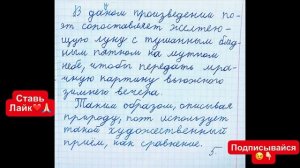 В данном произведении по-
эт сопоставляет желтею-
щую луну с туманным блед-
ным пятном на мутном
небе, чтобы передать мра-
чную картину вьюжного
зимнего вечера.
Таким образом, описывая
природу, поэт использует
такой художественный
приём, как сравнение.
5
Ставь
Лайк
Подписывайся